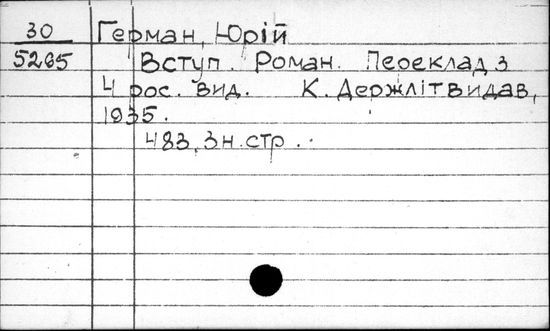 30 Герман, Юрій
5265 Вступ. Роман. Переклад з
4 рос. вид. К. Держлітвидав,
1935.
483, 3 н. стр.